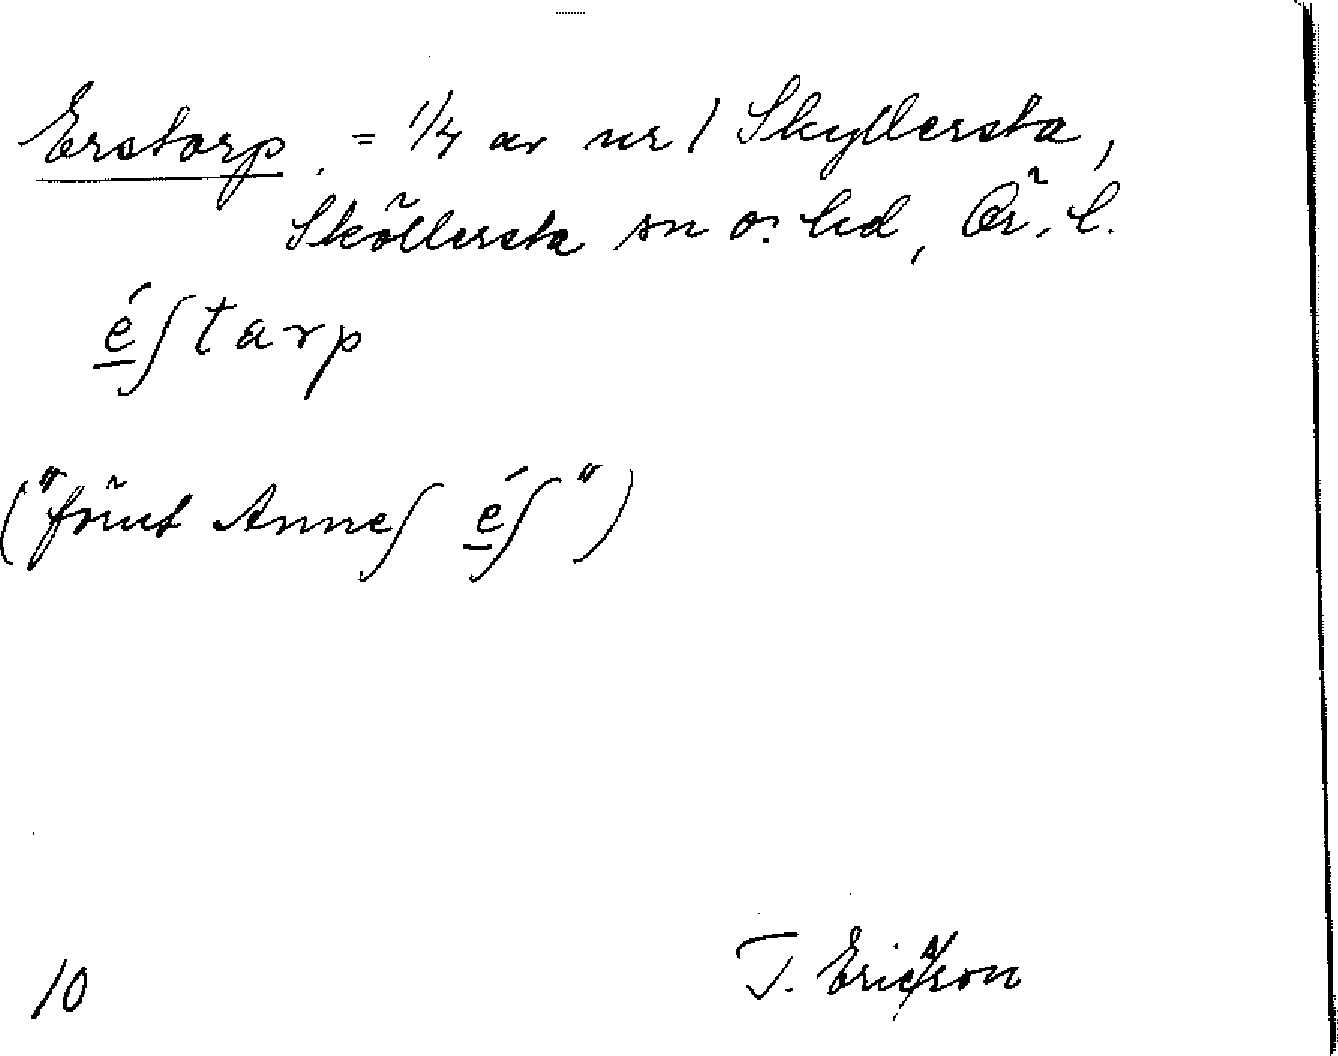 Erstorp. = 1/4 av nr 1 Skyllersta,
Sköllersta sn o. hd, Ör. l.
é̲ʃtarp
("frŭnt Anneʃ é̲ʃ")
10 T. Ericsson